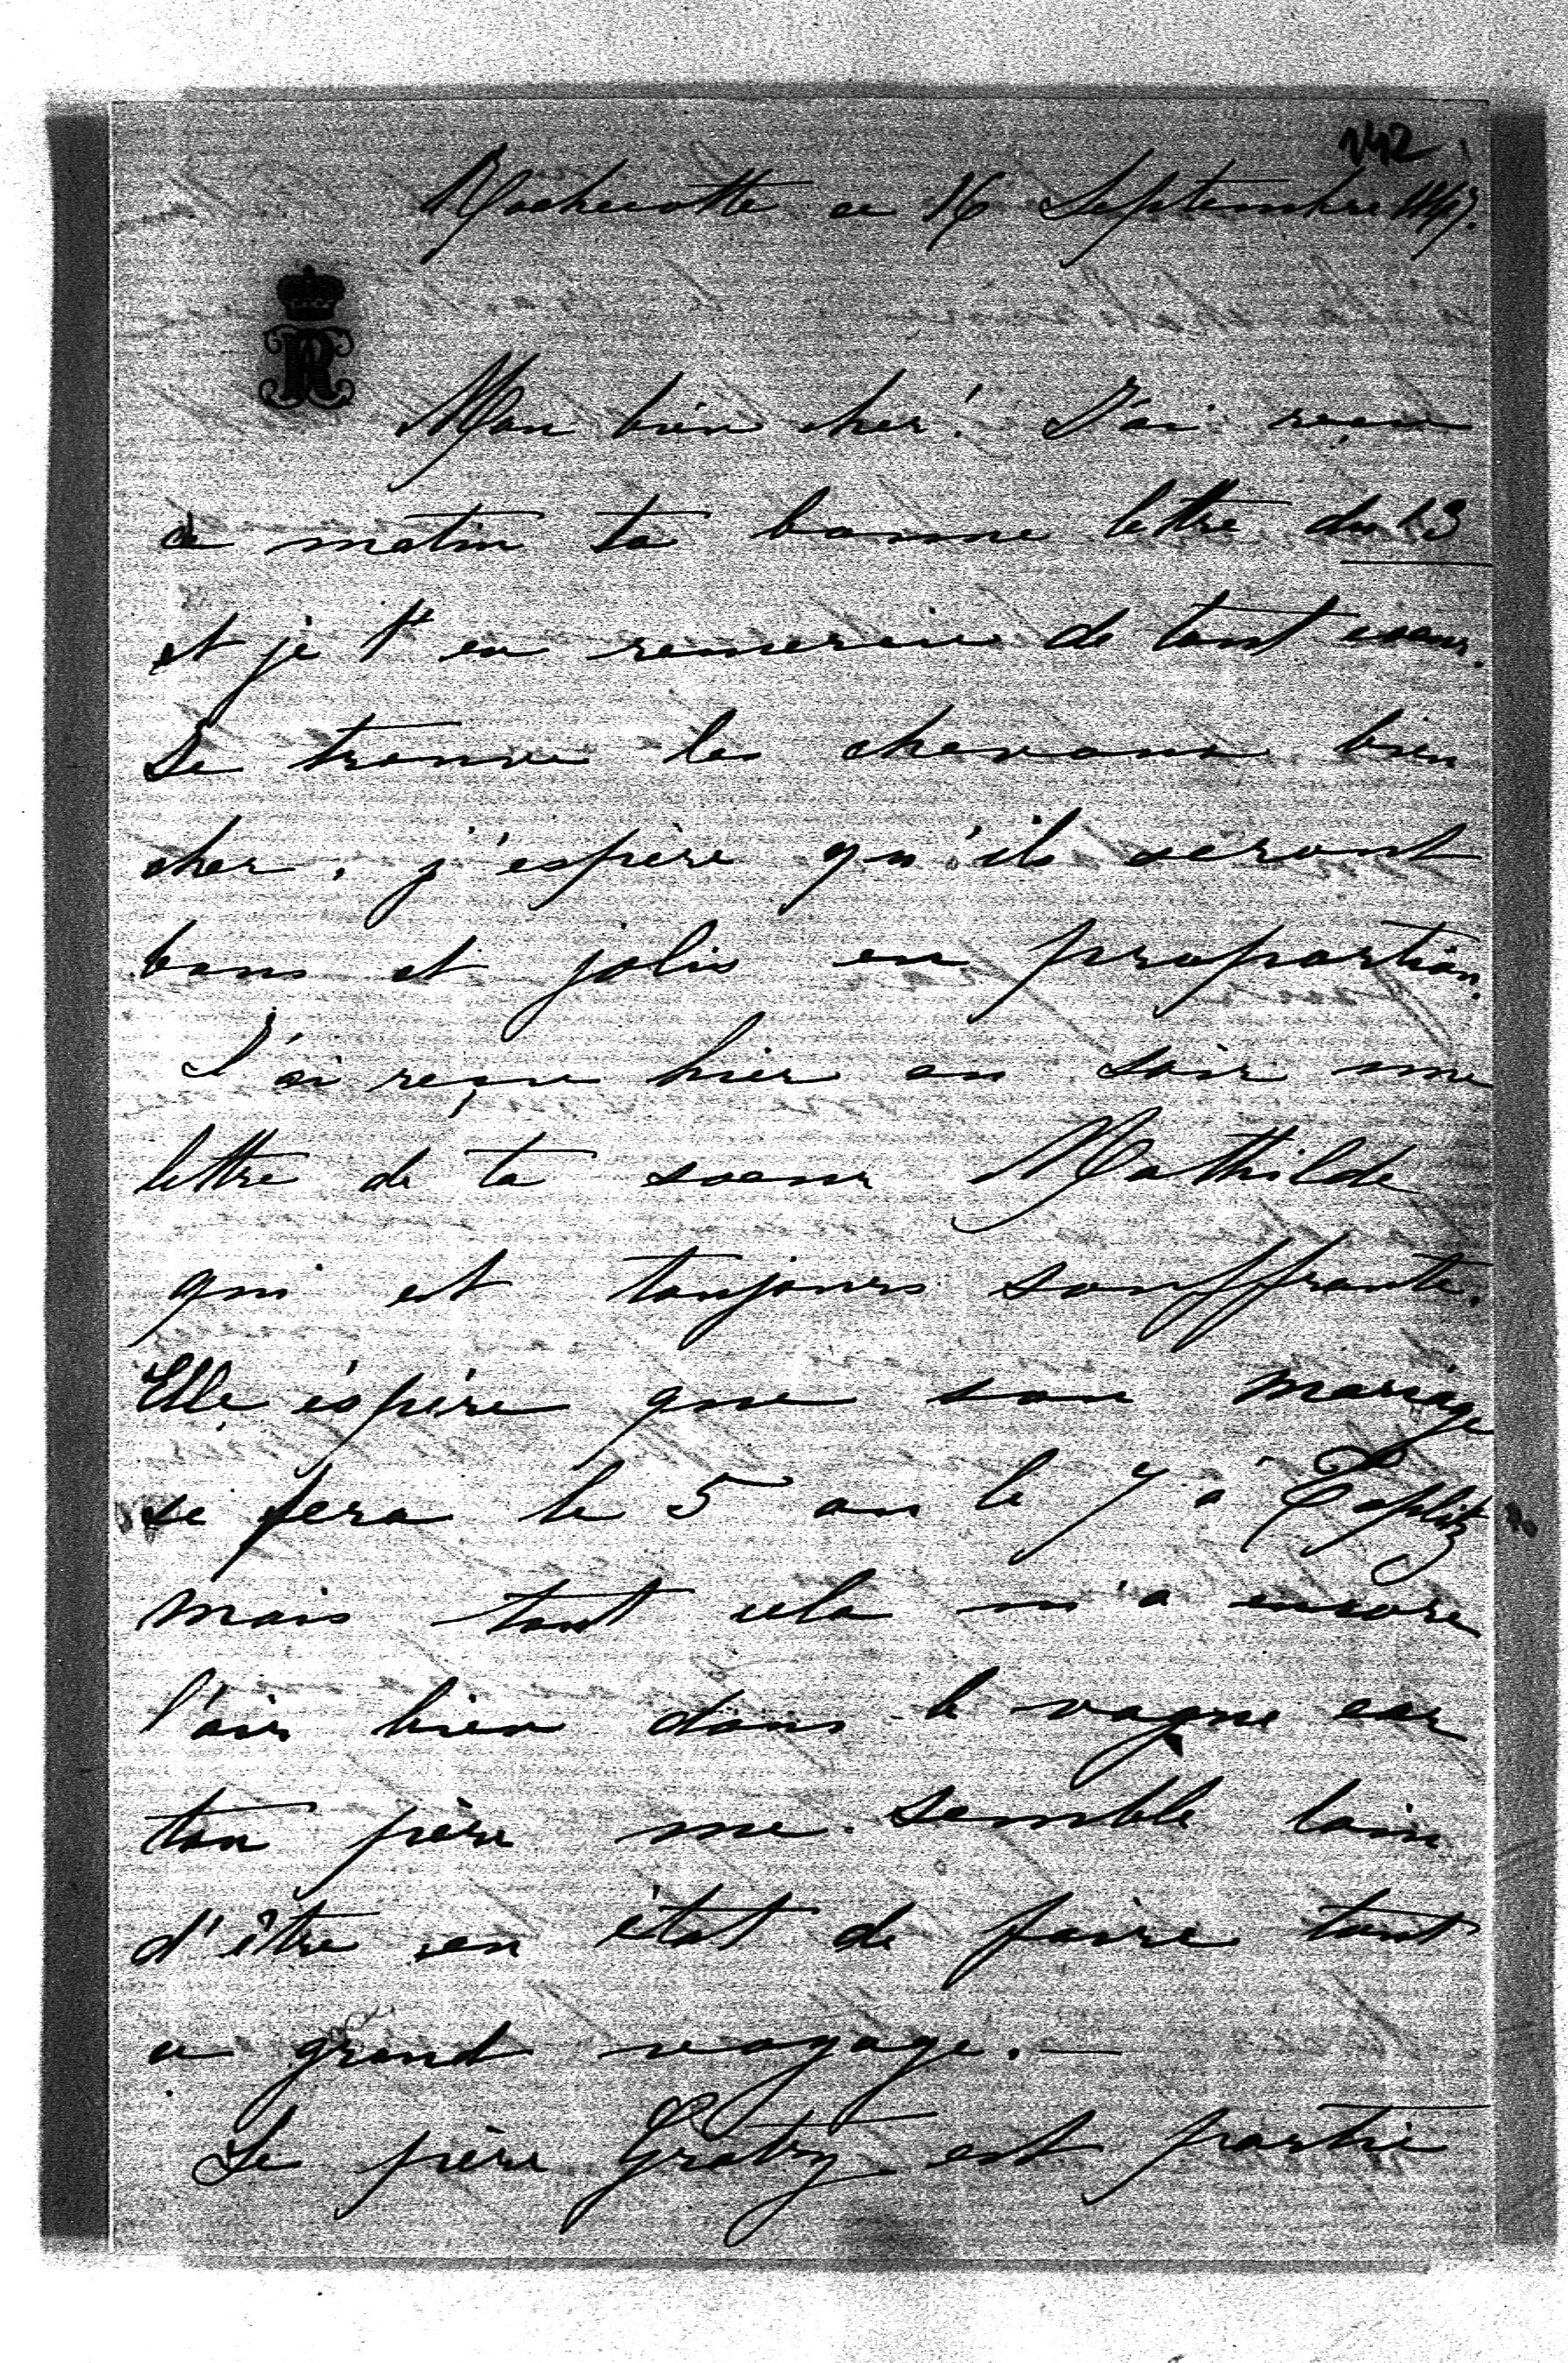 142
Rochecotte ce 16 Septembre
Mon bien cher! J'ai reçu
ce matin ta bonne lettre du 13
et je t'en remercie de tout coeur.
Je trouve les chevaux bien
cher, j'espère qu'ils seront
bons et jolis en proportion.
J'ai reçu hier au soir une
lettre de ta soeur Mathilde
qui est toujours souffrante.
Elle éspère que son mariage
se fera le 5 ou le 7 à Toeplitz
mais tout cela m'a encore
l'air bien dans le vague car
ton père me semble loin
d'être en état de faire tout
ce grand voyage. —
Le père Gratry est parti